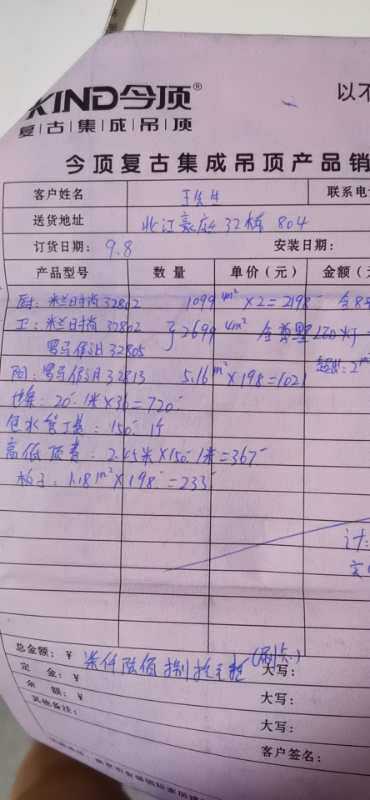 KIND今顶®
以不
复|古|集|成|吊|顶
今顶复古集成吊顶产品销
客户姓名 王先生 联系电
送货地址 北江豪庭 32栋 804
订货日期: 9.8 安装日期:
产品型号 数量 单价（元） 金额（元
厨: 米兰时尚 32802 1099 4m² ×2=2198
卫: 米兰时尚 32802 } 2699 4m²
罗马假日 32805 2m²
阳: 罗马假日 32813 5.16m²×198=1021
20.1米×36=720
包水管工费: 150
高低顶费: 2.45米×150/米=367
1.18m²×198=233
计:
总金额: ¥ 柒仟陆佰捌拾元整 (刷卡) 大写:
定 金: ¥ 大写:
余 额: ¥ 大写:
其他备注:
客户签名: